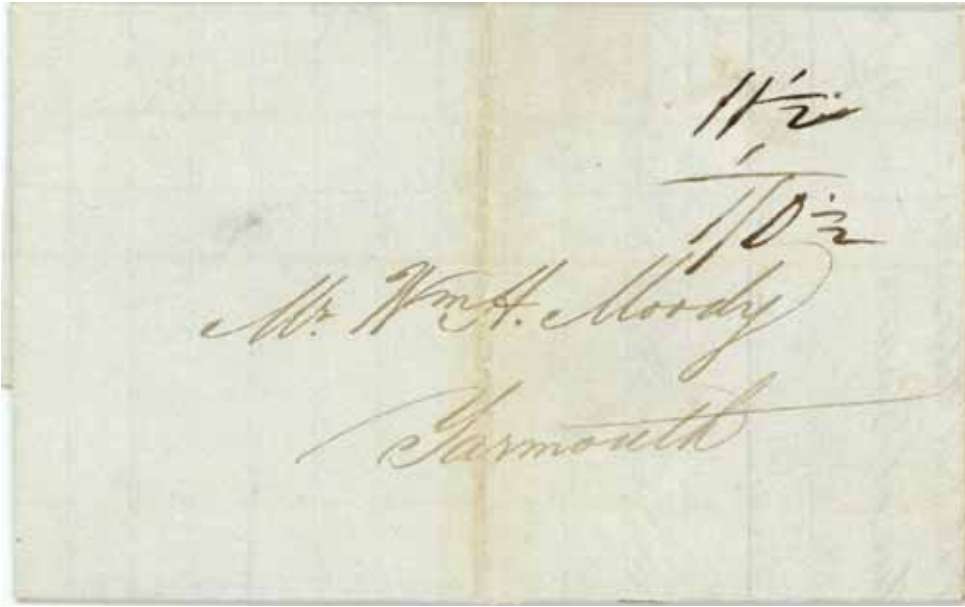 11½
1/10½
Mr. Wm H. Moody
Yarmouth